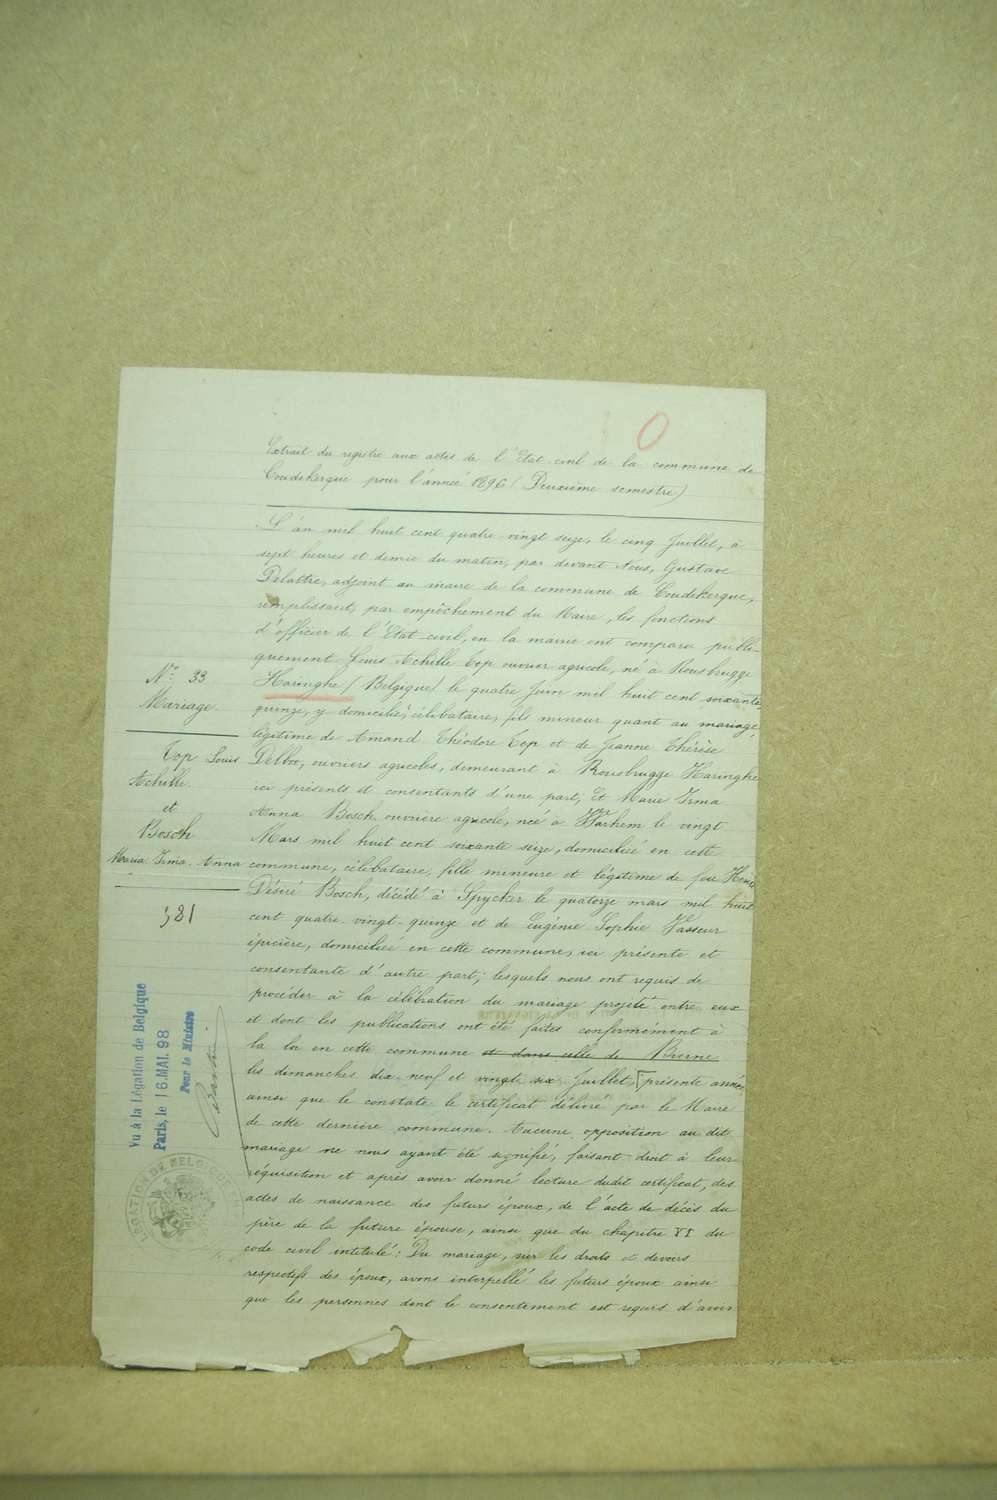 Extrait du registre aux actes de l'Etat civil de la commune de
Coudekerque pour l'année 1896 (Deuxième semestre)
L'an mil huit cent quatre vingt seize, le cinq Juillet, à
sept heures et demie du matin, par devant Nous, Gustave
Delattre, adjoint au maire de la commune de Coudekerque,
remplissant, par empêchement du Maire, les fonctions
d'officier de l'Etat-civil, en la mairie ont comparu publi-
quement Louis Achille Top ouvrier agricole, né à Rousbrugge
Haringhe (Belgique) le quatre Juin mil huit cent soixante
quinze, y domicilié, célibataire, fils mineur quant au mariage,
légitime de Amand Théodore Top et de Jeanne Thérèse
Delbov, ouvriers agricoles, demeurant à Rousbrugge Haringhe
ici présents et consentants d'une part, Et Marie Irma
Anna Bosch ouvrière agricole, née à Warhem le vingt
Mars mil huit cent soixante seize, domiciliée en cette
commune, célibataire, fille mineure et légitime de feu Henri
Désiré Bosch, décédé à Spycker le quatorze mars mil huit
cent quatre-vingt-quinze et de Eugénie Sophie Vasseur
épicière, domiciliée en cette commune, ici présente et
consentante d'autre part; lesquels nous ont requis de
procéder à la célébration du mariage projeté entre eux
et dont les publications ont été faites conformément à
la loi en cette commune et dans celle de Bierne
les dimanches dix-neuf et vingt six Juillet, présente année,
ainsi que le constate le certificat délivré par le Maire
de cette dernière commune. Aucune opposition au dit
mariage ne nous ayant été signifié, faisant droit à leur
réquisition et après avoir donné lecture dudit certificat, des
actes de naissance des futurs époux, de l'acte de décès du
père de la future épouse, ainsi que du chapitre VI du
code civil intitulé: Du mariage, sur les droits et devoirs
respectifs des époux, avons interpellé les futurs époux ainsi
que les personnes dont le consentement est requis d'avoir
N° 33
Mariage
Top Louis
Achille
et
Bosch
Maria Irma Anna
381
Vu à la Légation de Belgique
Paris, le 16. MAI. 98
Pour le Ministre
LEGATION DE BELGIQUE